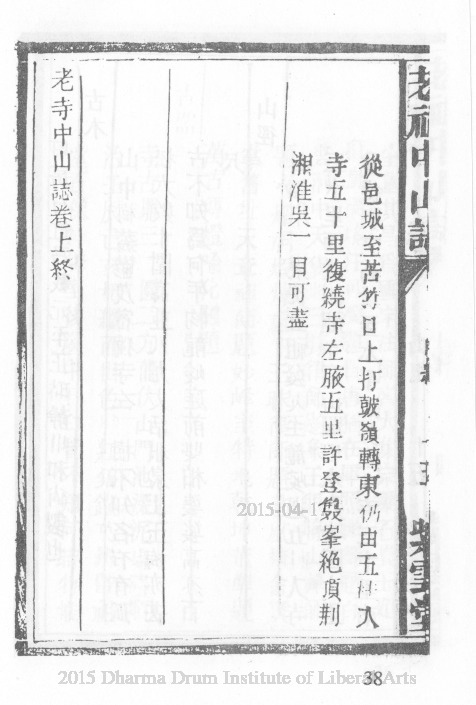 老祖中山誌
紫雲堂
從邑城至苦竹口上打鼓嶺轉東仍由五井入
寺五十里復繞寺左腋五里許登鼓峯絶頂荆
湘淮吳一目可盡
老寺中山誌卷上終
2015-04-17
38
2015 Dharma Drum Institute of Liberal Arts